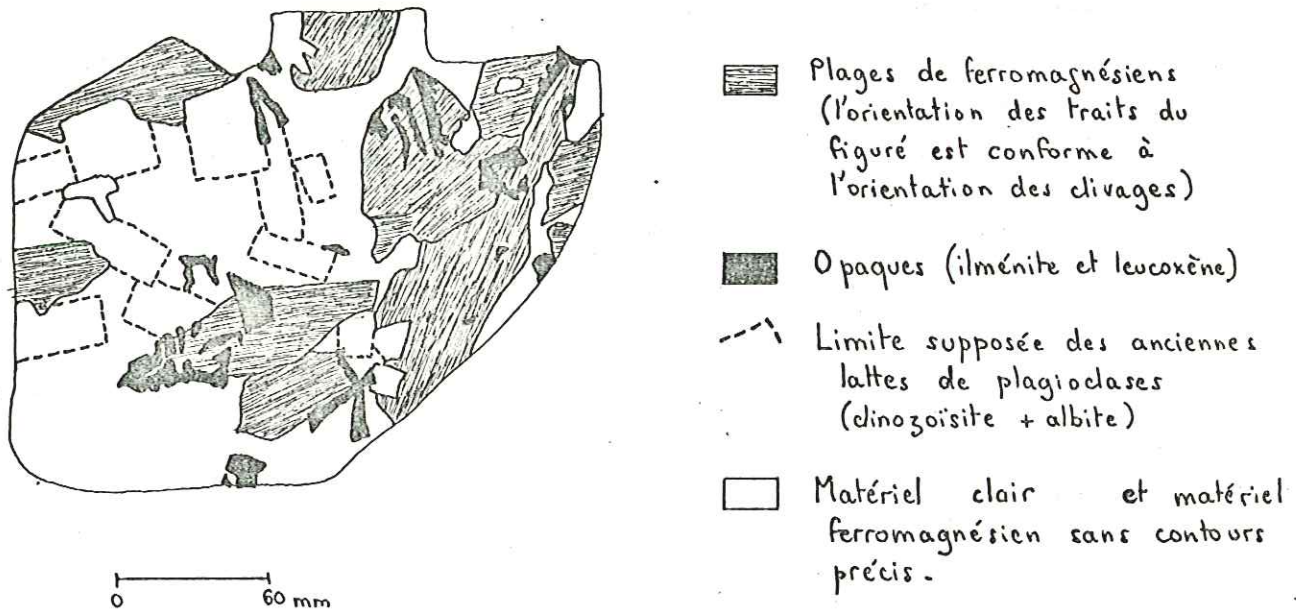 Plages de ferromagnésiens
(l'orientation des traits du
figuré est conforme à
l'orientation des clivages)
Opaques (ilménite et leucoxène)
Limite supposée des anciennes
lattes de plagioclases
(clinozoïsite + albite)
Matériel clair et matériel
ferromagnésien sans contours
précis.
0 60 mm